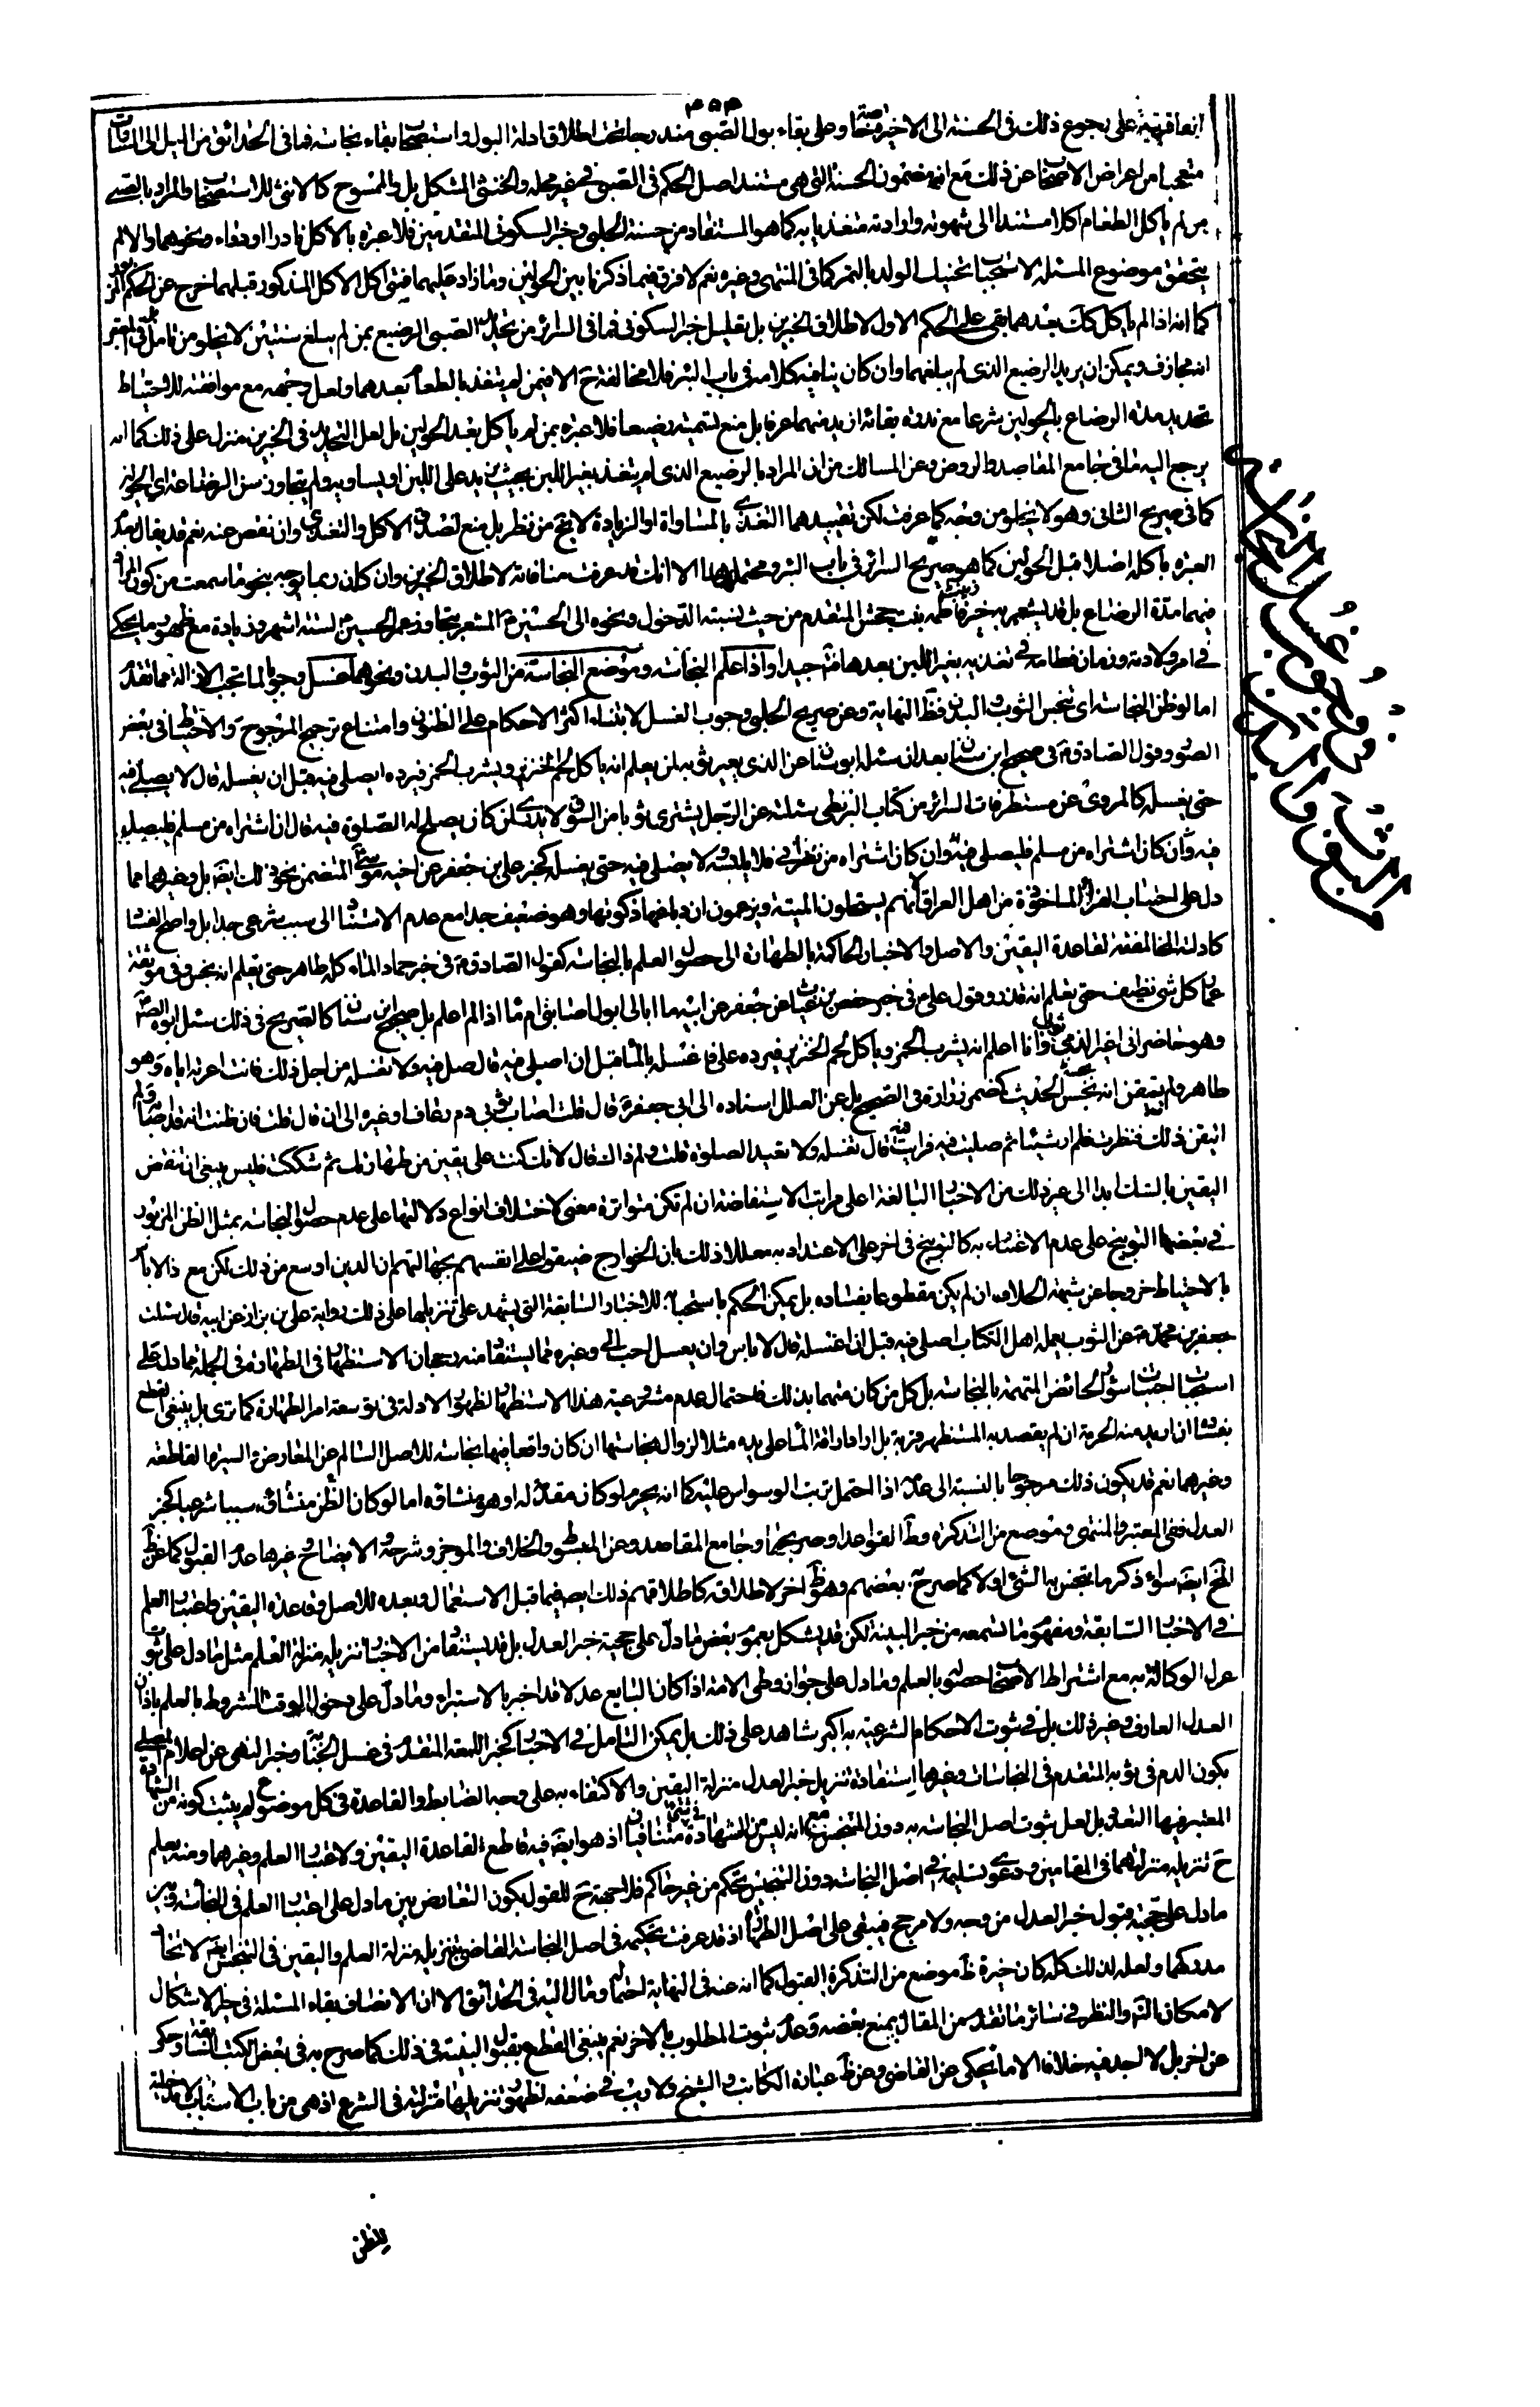 على رجوع ذلك في الحسنة إلى الأخير خاصة وعلى بقاء بول الصبي مندرجا تحت اطلاق ادلة البول واستصحاب بقاء نجاسته فما في الحدائق من الميل إلى
متعجبا من اعراض الاصحاب عن ذلك مع انه مضمون الحسنة التي هي مستند اصل الحكم في الصبي في غير محله والخنثى المشكل بل والممسوح كالانثى للاستصحاب والمراد بالصبي
من لم ياكل الطعام اكلا مستندا الى شهوته وارادته متغذيا به كما هو المستفاد من حسنة الحلبي وخبر السكوني المتقدمين فلا عبرة بالاكل نادرا او دواء ونحوهما والا لم
يتحقق موضوع المسئلة لاستحباب تحنيك الولد بالتمر كما في المنتهى وغيره نعم لا فرق فيما ذكرنا بين الحولين وما زاد عليهما فمتى اكل الاكل المذكور قبلهما خرج عن الحكم
كما انه اذا لم ياكل كك بعدهما بقي على الحكم الاول لاطلاق الخبرين بل تعليل خبر السكوني فما في السرائر من تحديد الصبي الرضيع بمن لم يبلغ سنتين لا يخلو من تامل
انه مجازف ويمكن ان يريد الرضيع الذي لم يبلغهما وان كان ينافيه كلامه في باب البئر فلا مخالفة ح الا فيمن لم يتغذ بالطعام بعدهما ولعل وجهه مع موافقته للاحتياط
تحديد مدة الرضاع بالحولين شرعا مع ندرة بقائه ازيد منهما عرفا بل منع تسميته رضيعا فلا عبرة بمن لم ياكل بعد الحولين بل لعل التحديد في الخبرين منزل على ذلك كما انه
يرجع اليه ما في جامع المقاصد والروض وعن المسالك من ان المراد بالرضيع الذي لم يتغذ بغير اللبن بحيث يزيد على اللبن او يساويه ولم يتجاوز سن الرضاعة اي الحولين
كما في صريح الثاني وهو لا يخلو من وجه كما عرفت لكن تقييدهما التغذي بالمساواة او الزيادة لا يخ من نظر بل منع لصدق الاكل والتغذي وان نقص عنه نعم قد يقال بعدم
العبرة باكله اصلا قبل الحولين كما هو صريح السرائر في باب البئر ومحتملهما الا انك قد عرفت منافاته لاطلاق الخبرين وان كان ربما يوجه بنحو ما سمعت من كون
فيهما مدة الرضاع بل قد يشعر به خبر زينب بنت جحش المتقدم من حيث نسبته الدخول ونحوه الى الحسين ع المشعر بتجاوز عمر الحسين ع لستة اشهر وزيادة مع ظهور ما يحكى
في امر ولادته وزمان فطامه في تغذيه بغير اللبن بعدها جيدا واذا علم النجاسة وموضع النجاسة من الثوب والبدن ونحوهما غسل وجوبا لما تجب الازالة مما تقدم
اما لو ظن النجاسة اي تنجس الثوب والبدن فظ النهاية وعن صريح الحلبي وجوب الغسل لابتناء اكثر الاحكام على الظنون وامتناع ترجيح المرجوح والاحتياط في بعض
الصور وقول الصادق ع في صحيح ابن سنان بعد ان سئله ابو سنان عن الذي يعير ثوبه لمن يعلم انه ياكل لحم الخنزير ويشرب الخمر فيرده ايصلي فيه قبل ان يغسله قال لا يصلي فيه
حتى يغسله كالمروي عن مستطرفات السرائر من كتاب البزنطي سئلته عن الرجل يشتري ثوبا من السوق لا يدري لمن كان يصلح له الصلوة فيه قال ان اشتراه من مسلم فليصلي
فيه وان كان اشتراه من نصراني فلا يلبسه ولا يصلى فيه حتى يغسله كخبر علي بن جعفر عن اخيه موسى ع المتضمن نحو ذلك ايضا بل وغيرهما مما
دل على اجتناب الفراء الماخوذة من اهل العراق لانهم يستحلون الميتة ويزعمون ان دباغها ذكوتها وهو ضعيف جدا مع عدم الاستناد الى سبب شرعي جدا بل واضح الفساد
كادلته المخالفة لقاعدة اليقين والاصل والاخبار الحاكمة بالطهارة الى حصول العلم بالنجاسة كقول الصادق ع في خبر حماد الماء كله طاهر حتى يعلم انه نجس وفي موثقة
عمار كل شي نظيف حتى يعلم انه قذر وقول علي ع في خبر حفص بن غياث عن جعفر عن ابيه ما ابالي ابول اصابني ام ماء اذا لم اعلم بل صحيح ابن سنان كالصريح في ذلك سئل ابوه
وهو حاضر اني اعير الذمي ثوبي وانا اعلم انه يشرب الخمر وياكل لحم الخنزير فيرده علي فاغسله بالماء قبل ان اصلي فيه قال صل فيه ولا تغسله من اجل ذلك فانك اعرته اياه وهو
طاهر ولم تستيقن انه نجسه الحديث كمضمر زرارة في الصحيح بل عن العلل اسناده الى ابي جعفر ع قال قلت اصاب ثوبي دم رعاف او غيره الى ان قال قلت فان ظننت انه قد اصابه ولم
اتيقن ذلك فنظرت فلم ار شيئا ثم صليت فيه فرايت فيه قال تغسله ولا تعيد الصلوة قلت ولم ذاك قال لانك كنت على يقين من طهارتك ثم شككت فليس ينبغي ان تنقض
اليقين بالشك ابدا الى غير ذلك من الاخبار البالغة اعلى مراتب الاستفاضة ان لم تكن متواترة معنى لاختلاف انواع دلالتها على عدم حصول النجاسة بمثل الظن المزبور
في بعضها التوبيخ على عدم الاعتناء به كالتوبيخ في اخر على الاعتداد به معللا ذلك بان الخوارج ضيقوا على انفسهم بجهالتهم ان الدين اوسع من ذلك لكن مع ذا لا باس
بالاحتياط خروجا عن شبهة الخلاف ان لم يكن مقطوعا بفساده بل يمكن الحكم باستحبابه للاخبار السابقة التي يشهد على تنزيلها على ذلك رواية علي بن بزاز عن ابيه قال سئلت
جعفر بن محمد ع عن الثوب يعمله اهل الكتاب اصلي فيه قبل ان اغسله قال لا باس وان يغسل احب الي وغيره مما يستفاد منه رجحان الاستظهار في الطهارة في الجملة مما دل على
استحباب اجتناب سؤر الحائض المتهمة بالنجاسة بل كل من كان متهما بذلك فاحتمال عدم مشروعية هذا الاستظهار لظهور الادلة في توسعة امر الطهارة كما ترى بل ينبغي القطع
بفساد ان اريد منه الحرمة ان لم يقصد به المستظهر قربة بل اراد اراقة الماء على يديه مثلا لزوال نجاستها ان كان واقعا فيها نجاسة للاصل السالم عن المعارض والسيرة القاطعة
وغيرهما نعم قد يكون ذلك مرجوحا بالنسبة الى عدمه اذا احتمل ترتب الوسواس عليه كما انه يحرم لو كان مقدمة له او هو منشاؤه اما لو كان الظن من شاؤه سببا شرعيا كخبر
العدل ففي المعتبر والمنتهى وموضع من التذكرة وظ القواعد او صريحها وجامع المقاصد وعن المبسوط والخلاف والموجز وشرحه والايضاح وغيرها عدم القبول كما عن ظ
الخ ايضا سواء ذكر ما تنجس به الشئ اولا كما صرح به بعضهم وهو ظ اخر لاطلاقه كاطلاقهم ذلك ايض فيما قبل الاستعمال وبعده للاصل وقاعدة اليقين واعتبار العلم
في الاخبار السابقة ومفهوم ما تسمعه من خبر البينة لكن قد يشكل بعموم بعض ما دل على حجية خبر العدل بل قد يستفاد من الاخبار تنزيله منزلة العلم مثل ما دل على ثبوت
عزل الوكالة به مع اشتراط الاصحاب حصوله بالعلم وما دل على جواز وطي الامة اذا كان البايع عدلا قد اخبر بالاستبراء وما دل على دخول الوقت المشروط بالعلم باذان
العدل العارف وغير ذلك بل في ثبوت الاحكام الشرعية به اكبر شاهد على ذلك بل يمكن التامل في الاخبار كخبر اللمعة المتقدم في غسل الجنابة وخبر النهي عن اعلام المصلي
بكون الدم في ثوبه المتقدم في النجاسات وغيرها استفادة تنزيل خبر العدل منزلة اليقين والاكتفاء به على وجه الضابط والقاعدة في كل موضوع لم يثبت كونه من الشهادة
المعتبر فيها التعدد بل لعل ثبوت اصل النجاسة به دون المتنجس مع انه ليس من الشهادة في شئ متنافيان اذ هو ايضا فيه قاطع لقاعدة اليقين ولاعتبار العلم وغيرهما ومنه يعلم
ح تنزيله منزلتهما في المقامين ودعوى تسليمه في اصل النجاسة دون التنجيس تحكم من غير حاكم فلا جهة ح للقول بكون التعارض بين ما دل على اعتبار العلم في النجاسة وبين
ما دل على حجية قبول خبر العدل من وجه ولا مرجح فيبقى على اصل الطهارة اذ قد عرفت تحكيمه في اصل النجاسة القاضي بتنزيله منزلة العلم واليقين في التنجس ايضا لاتحاد
مدركهما ولعله لذلك كله كان خيرة ظ موضع من التذكرة القبول كما انه عنه في النهاية احتماله ومال اليه في الحدائق الا ان الانصاف بقاء المسئلة في حيز الاشكال
لامكان التامل والنظر في سائر ما تقدم من المقال بمنع بعضه وعدم ثبوت المطلوب بالاخر نعم ينبغي القطع بقبول البينة في ذلك كما صرح به في بعض الكتب السابقة وحكى
عن اخر بل لا اجد فيه خلافا الا ما يحكى عن القاضي وعن ظ عبارة الكاتب والشيخ ولا ريب في ضعفه لظهور تنزيلها منزلته في الشرع اذ هي من باب الاسباب لا مدخلية
للظن